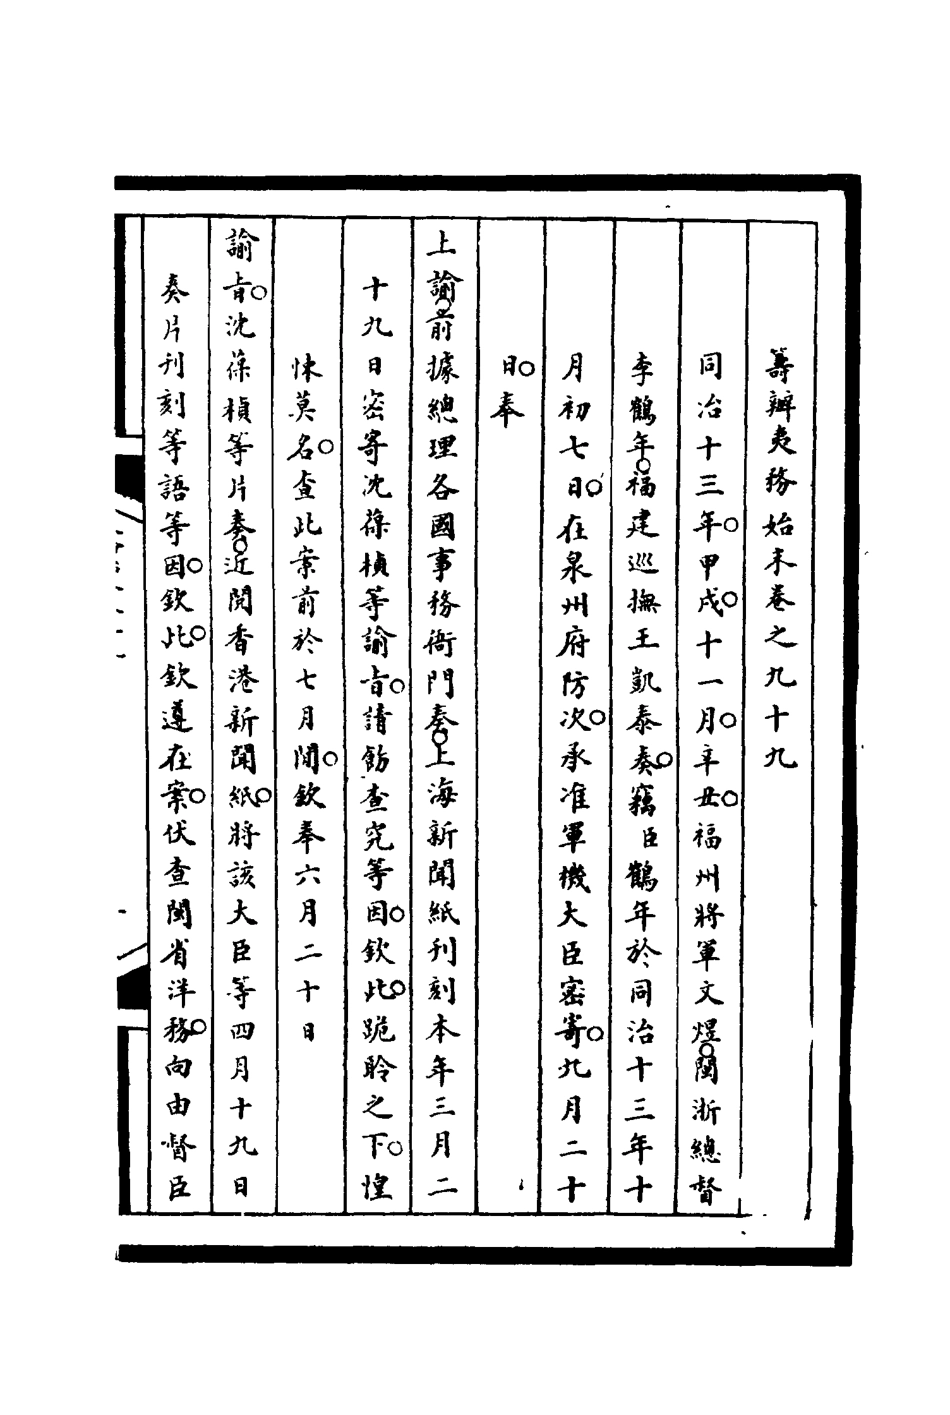 籌辦夷務始末卷之九十九
同治十三年。甲戌。十一月。辛丑。福州將軍文煜。閩浙總督
李鶴年。福建巡撫王凱泰奏。竊臣鶴年於同治十三年十
月初七日。在泉州府防次。承准軍機大臣密寄。九月二十
日。奉
上諭。前據總理各國事務衙門奏。上海新聞紙刊刻本年三月二
十九日密寄沈葆楨等諭旨。請飭查究等因。欽此。跪聆之下。惶
悚莫名。查此案前於七月間。欽奉六月二十日
諭旨。沈葆楨等片奏。近閱香港新聞紙。將該大臣等四月十九日
奏片刊刻等語等因。欽此。欽遵在案。伏查閩省洋務。向由督臣